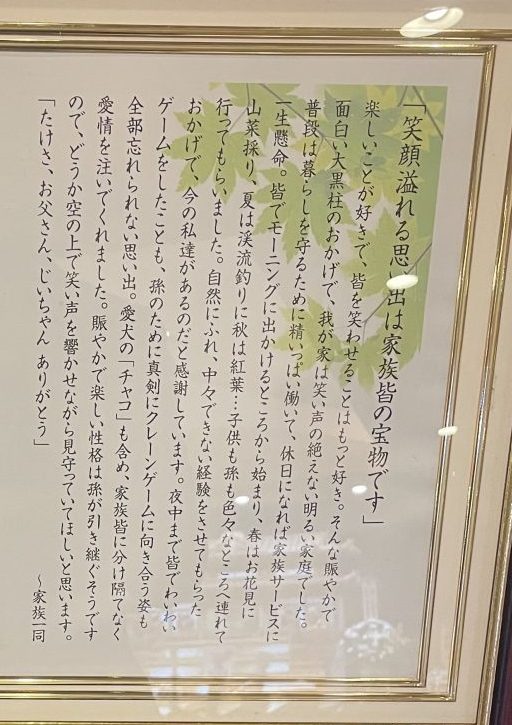 「笑顔溢れる思い出は家族皆の宝物です」
楽しいことが好きで、皆を笑わせることはもっと好き。そんな賑やかで
面白い大黒柱のおかげで、我が家は笑い声の絶えない明るい家庭でした。
普段は暮らしを守るために精いっぱい働いて、休日になれば家族サービスに
一生懸命。皆でモーニングに出かけるところから始まり、春はお花見に
山菜採り、夏は渓流釣りに秋は紅葉…子供も孫も色々なところへ連れて
行ってもらいました。自然にふれ、中々できない経験をさせてもらった
おかげで、今の私達があるのだと感謝しています。夜中まで皆でわいわい
ゲームをしたことも、孫のために真剣にクレーンゲームに向き合う姿も
全部忘れられない思い出。愛犬の「チャコ」も含め、家族皆に分け隔てなく
愛情を注いでくれました。賑やかで楽しい性格は孫が引き継ぐそうです
ので、どうか空の上で笑い声を響かせながら見守っていてほしいと思います。
「たけさ、お父さん、じいちゃん ありがとう」
～家族一同